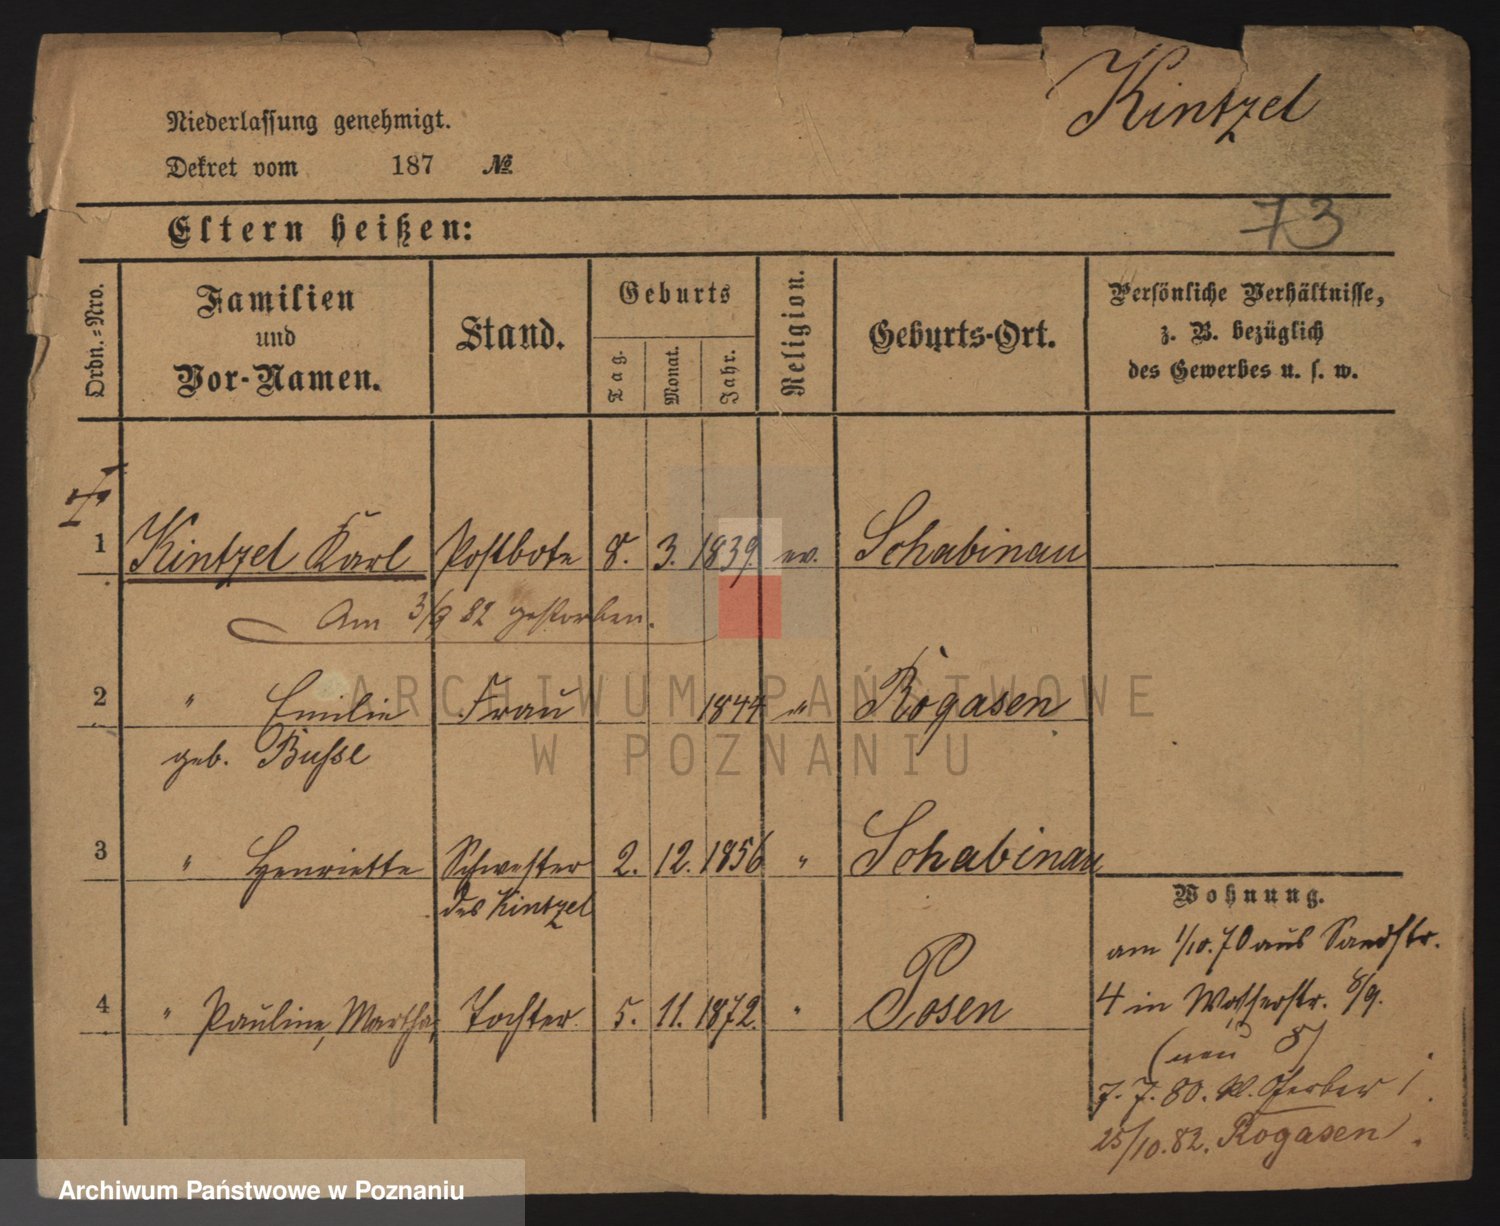 Kintzel
Niederlassung genehmigt.
Dekret vom 187 №
73
Eltern heißen:
Ordn.-Nro.
Familien
und
Vor-Namen.
Stand.
Geburts
Tag.
Monat.
Jahr.
Religion.
Geburts-Ort.
Persönliche Verhältnisse,
z. B. bezüglich
des Gewerbes u. s. w.
1 Kintzel Karl Postbote 8. 3. 1839. ev. Schabinau
Am 3/9 82 gestorben.
2 " Emilie Frau 1844 " Rogasen
geb. Busse
3 " Henriette Schwester 2. 12. 1856 " Schabinau
des Kintzel
4 " Pauline, Martha, Tochter 5. 11. 1872. " Posen
Wohnung.
am 1/10. 70 aus Sandstr.
4 in Wasserstr. 8/9.
(neu 8)
7. 7. 80. Kl. Gerber
25/10. 82. Rogasen.
ARCHIWUM PAŃSTWOWE
W POZNANIU
Archiwum Państwowe w Poznaniu